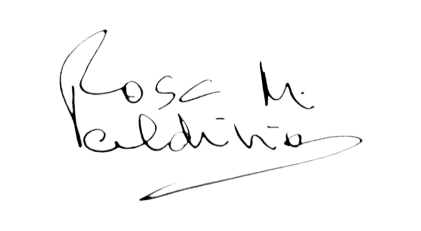 Rosa M.
Valdivia